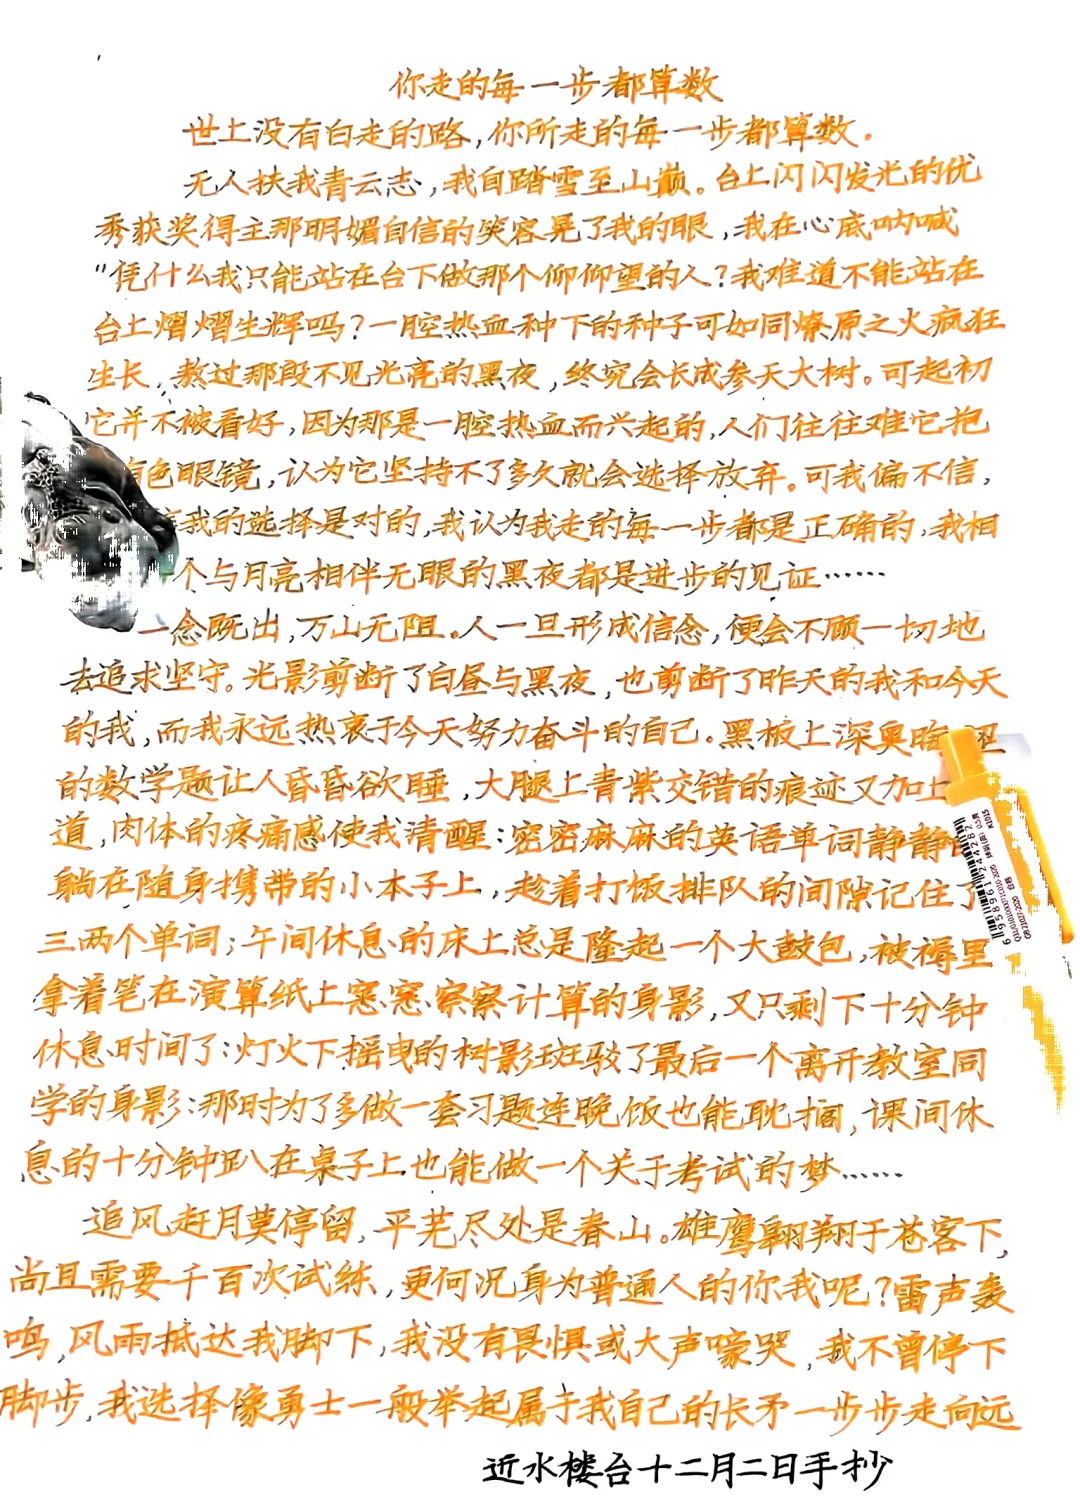 你走的每一步都算数
世上没有白走的路,你所走的每一步都算数。
无人扶我青云志,我自踏雪至山巅。台上闪闪发光的优
秀获奖得主那明媚自信的笑容晃了我的眼,我在心底呐喊
"凭什么我只能站在台下做那个仰仰望的人?我难道不能站在
台上熠熠生辉吗?一腔热血种下的种子可如同燎原之火疯狂
生长,熬过那段不见光亮的黑夜,终究会长成参天大树。可起初
它并不被看好,因为那是一腔热血而兴起的,人们往往难它抱
有色眼镜,认为它坚持不了多久就会选择放弃。可我偏不信,
我的选择是对的,我认为我走的每一步都是正确的,我相
个与月亮相伴无眠的黑夜都是进步的见证……
一念既出,万山无阻。人一旦形成信念,便会不顾一切地
去追求坚守。光影剪断了白昼与黑夜,也剪断了昨天的我和今天
的我,而我永远热衷于今天努力奋斗的自己。黑板上深奥晦涩
的数学题让人昏昏欲睡,大腿上青紫交错的痕迹又加上
道,肉体的疼痛感使我清醒:密密麻麻的英语单词静静
躺在随身携带的小本子上,趁着打饭排队的间隙记住了
三两个单词;午间休息的床上总是隆起一个大鼓包,被褥里
拿着笔在演算纸上窸窸窣窣计算的身影,又只剩下十分钟
休息时间了:灯火下摇曳的树影斑驳了最后一个离开教室同
学的身影:那时为了多做一套习题连晚饭也能耽搁,课间休
息的十分钟趴在桌子上也能做一个关于考试的梦……
追风赶月莫停留,平芜尽处是春山。雄鹰翱翔于苍客下,
尚且需要千百次试练,更何况身为普通人的你我呢?雷声轰
鸣,风雨抵达我脚下,我没有畏惧或大声嚎哭,我不曾停下
脚步,我选择像勇士一般举起属于我自己的长矛一步步走向远
近水楼台十二月二日手抄
6958961244282
K1015